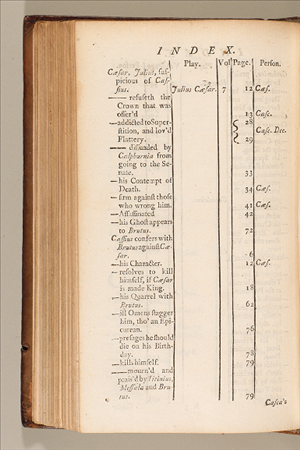 INDEX.
Play. Vol Page. Person.
Cæsar, Julius, sus-
picious of Cas-
sius. Julius Cæsar. 7 12 Cæs.
— refuseth the
Crown that was
offer'd 13 Casc.
—addicted to Super- 28
stition, and lov'd Casc. Dec.
Flattery. 29
—— dissuaded by
Calphurnia from
going to the Se-
nate. 33
—his Contempt of
Death. 34 Cæs.
— firm against those
who wrong him. 41 Cæs.
—Assassinated 42
—his Ghost appears
to Brutus. 72
Cassius confers with
Brutus against Cæ-
sar. 6
—his Character. 12 Cæs.
—resolves to kill
himself, if Cæsar
is made King. 18
—his Quarrel with
Brutus. 62
—ill Omens stagger
him, tho' an Epi-
curean. 76
—presages he should
die on his Birth-
day. 78
—kills himself. 79
——mourn'd and
prais'd by Titinius,
Messala and Bru-
tus. 79
Casca's